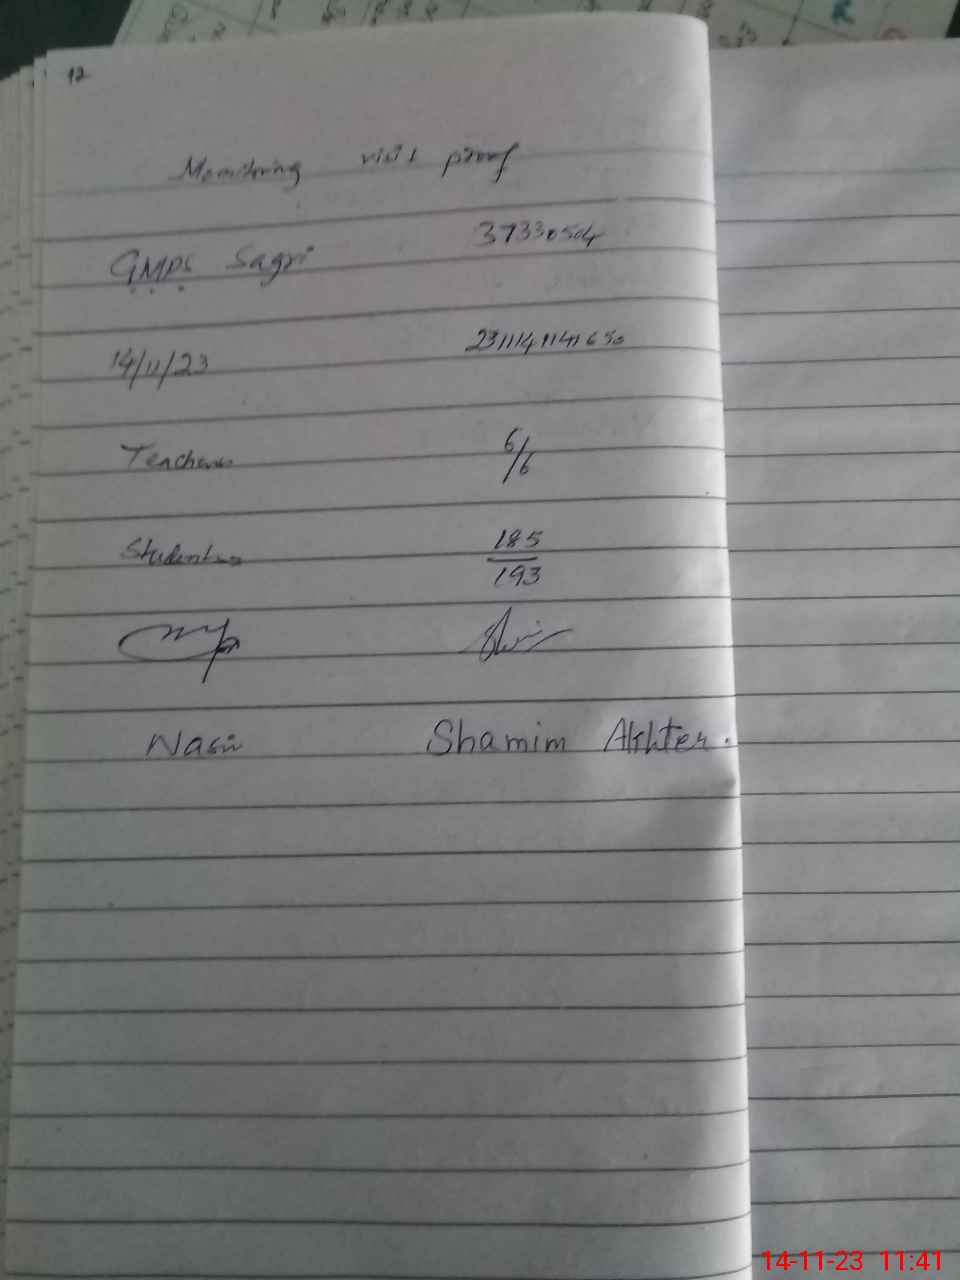 12
Monitoring visit proof
GMPS Sagri 37330504
14/11/23 2311141141650
Teachers 6/6
Students 185/193
Nasir Shamim Akhter.
14-11-23 11:41